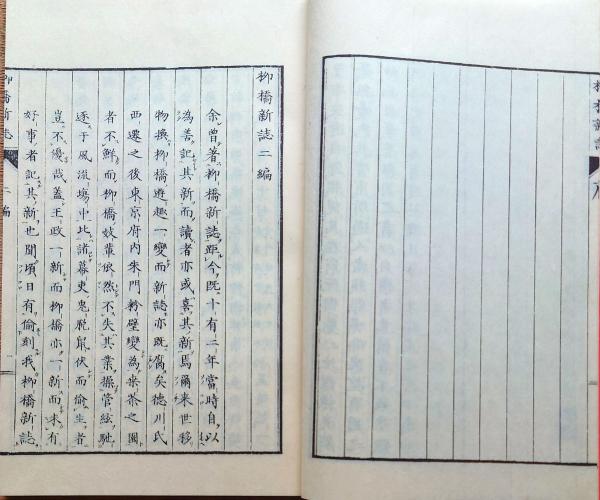 柳橋新誌二編
余曾著柳橋新誌距今既十有二年當時自以
為善記其新而讀者亦或喜其新焉爾来世移
物換柳橋遊趣一變而新誌亦既腐矣徳川氏
西遷之後東京府内朱門粉壁變為桑茶之園
者不鮮而柳橋妓輩依然不失其業操管絃馳
逐于風流場中比諸幕吏鬼脱鼠伏而偷生者
豈不優哉蓋王政一新而柳橋亦一新而未有
好事者記其新也聞頃日有偷刻我柳橋新誌
柳橋新誌
二編
一